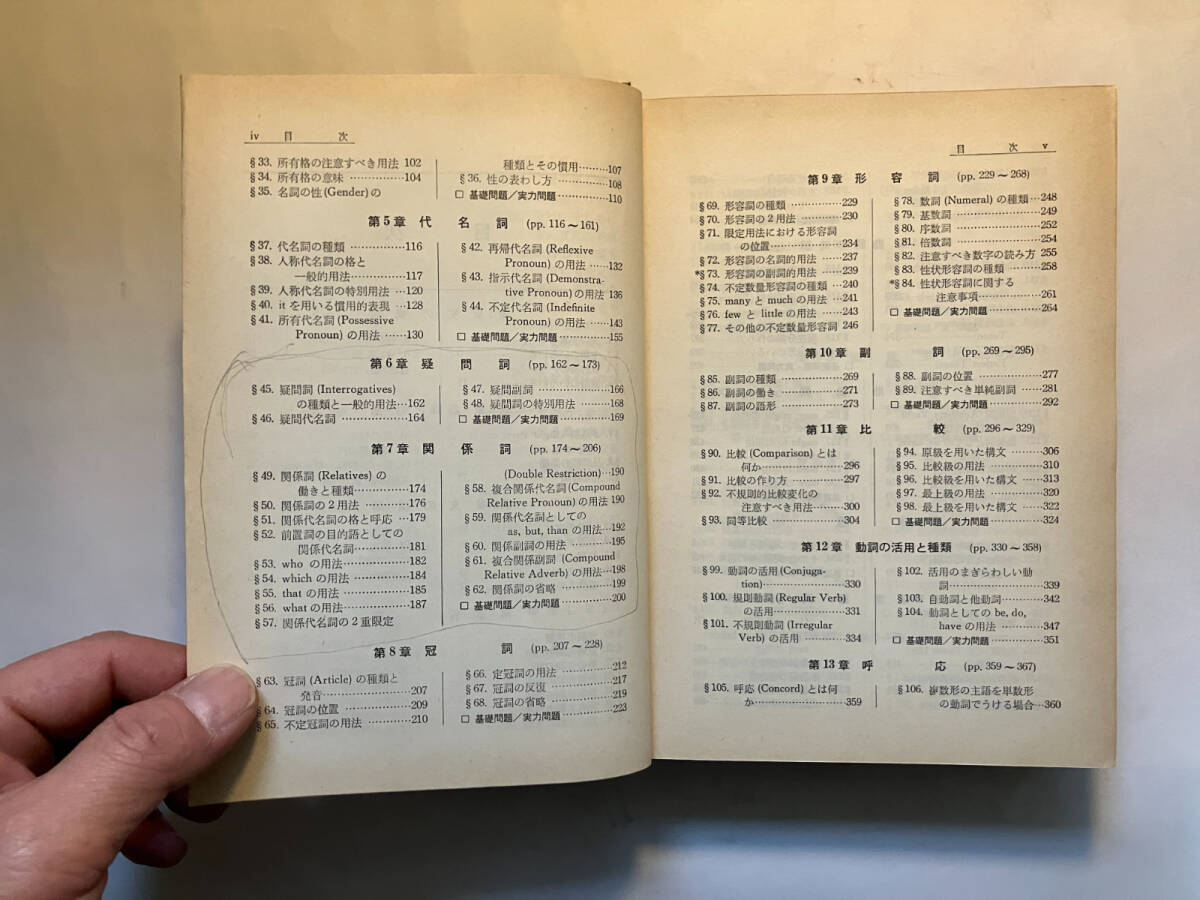 iv 目 次
§33. 所有格の注意すべき用法 102
§34. 所有格の意味 ……………104
§35. 名詞の性(Gender)の
種類とその慣用………107
§36. 性の表わし方 …………108
□ 基礎問題/実力問題…………110
第5章 代 名 詞 (pp. 116～161)
§37. 代名詞の種類 ……………116
§38. 人称代名詞の格と
一般的用法…………117
§39. 人称代名詞の特別用法 …120
§40. it を用いる慣用的表現 …128
§41. 所有代名詞(Possessive
Pronoun) の用法 ……130
§42. 再帰代名詞 (Reflexive
Pronoun) の用法 ……132
§43. 指示代名詞(Demonstra-
tive Pronoun)の用法 136
§44. 不定代名詞(Indefinite
Pronoun) の用法 ……143
□ 基礎問題/実力問題…………155
第6章 疑 問 詞 (pp. 162～173)
§45. 疑問詞(Interrogatives)
の種類と一般的用法…162
§46. 疑問代名詞 ……………164
§47. 疑問副詞 ………………166
§48. 疑問詞の特別用法 ………168
□ 基礎問題/実力問題…………169
第7章 関 係 詞 (pp. 174～206)
§49. 関係詞(Relatives) の
働きと種類…………174
§50. 関係詞の2用法 …………176
§51. 関係代名詞の格と呼応 …179
§52. 前置詞の目的語としての
関係代名詞…………181
§53. who の用法………………182
§54. which の用法……………184
§55. that の用法………………185
§56. what の用法………………187
§57. 関係代名詞の2重限定
(Double Restriction)…190
§58. 複合関係代名詞(Compound
Relative Pronoun) の用法 190
§59. 関係代名詞としての
as, but, than の用法…192
§60. 関係副詞の用法 …………195
§61. 複合関係副詞 (Compound
Relative Adverb) の用法…198
§62. 関係詞の省略 ……………199
□ 基礎問題/実力問題…………200
第8章 冠 詞 (pp. 207～228)
§63. 冠詞 (Article) の種類と
発音…………………207
§64. 冠詞の位置 ……………209
§65. 不定冠詞の用法 …………210
§66. 定冠詞の用法 ……………212
§67. 冠詞の反復 ………………217
§68. 冠詞の省略 ………………219
□ 基礎問題/実力問題…………223
目 次 v
第9章 形 容 詞 (pp. 229～268)
§69. 形容詞の種類 ……………229
§70. 形容詞の2用法 …………230
§71. 限定用法における形容詞
の位置………………234
§72. 形容詞の名詞的用法 ……237
*§73. 形容詞の副詞的用法 ……239
§74. 不定数量形容詞の種類 …240
§75. many と much の用法 …241
§76. few と little の用法 ……243
§77. その他の不定数量形容詞 246
§78. 数詞 (Numeral) の種類…248
§79. 基数詞 …………………249
§80. 序数詞 …………………252
§81. 倍数詞 …………………254
§82. 注意すべき数字の読み方 255
§83. 性状形容詞の種類 ………258
*§84. 性状形容詞に関する
注意事項……………261
□ 基礎問題/実力問題…………264
第10章 副 詞 (pp. 269～295)
§85. 副詞の種類 ………………269
§86. 副詞の働き ………………271
§87. 副詞の語形 ………………273
§88. 副詞の位置 ………………277
§89. 注意すべき単純副詞 ……281
□ 基礎問題/実力問題…………292
第11章 比 較 (pp. 296～329)
§90. 比較 (Comparison) とは
何か…………………296
§91. 比較の作り方 ……………297
§92. 不規則的比較変化の
注意すべき用法………300
§93. 同等比較 ………………304
§94. 原級を用いた構文 ………306
§95. 比較級の用法 ……………310
§96. 比較級を用いた構文 ……313
§97. 最上級の用法 ……………320
§98. 最上級を用いた構文 ……322
□ 基礎問題/実力問題…………324
第12章 動詞の活用と種類 (pp. 330～358)
§99. 動詞の活用 (Conjuga-
tion)…………………330
§100. 規則動詞 (Regular Verb)
の活用………………331
§101. 不規則動詞 (Irregular
Verb) の活用 ………334
§102. 活用のまぎらわしい動
詞……………………339
§103. 自動詞と他動詞…………342
§104. 動詞としての be, do,
have の用法…………347
□ 基礎問題/実力問題…………351
第13章 呼 応 (pp. 359～367)
§105. 呼応 (Concord) とは何
か……………………359
§106. 複数形の主語を単数形
の動詞でうける場合…360